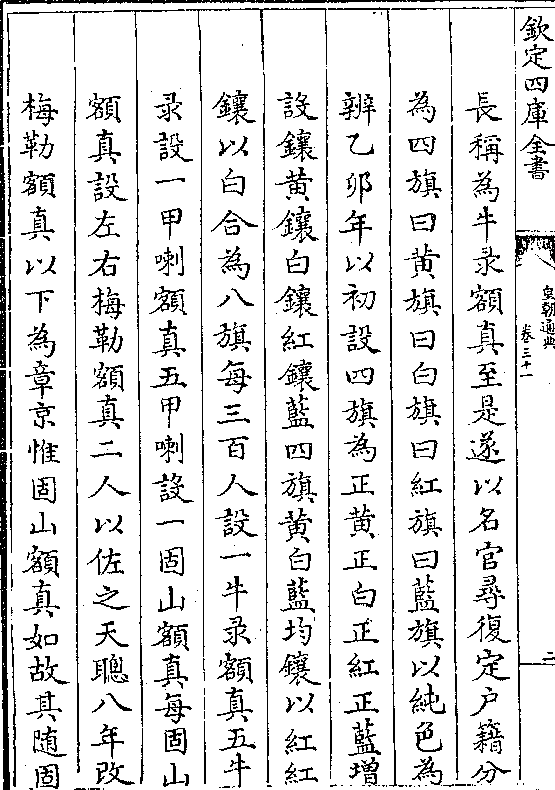 欽定四庫全書
皇朝通典
卷三十一
二
長稱為牛录額真至是遂以名官尋復定户籍分
為四旗曰黄旗曰白旗曰紅旗曰藍旗以純色為
辨乙卯年以初設四旗為正黄正白正紅正藍增
設鑲黄鑲白鑲紅鑲藍四旗黄白藍均鑲以紅紅
鑲以白合為八旗每三百人設一牛录額真五牛
录設一甲喇額真五甲喇設一固山額真每固山
額真設左右梅勒額真二人以佐之天聰八年改
梅勒額真以下為章京惟固山額真如故其随固